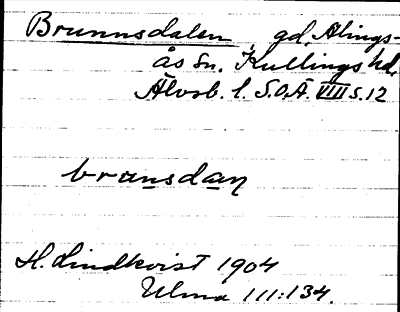 Brunnsdalen, gd, Alings-
ås sn. Kullings hd,
Älvsb. l. S.O.Ä. VIII s. 12
brunsdaṉ
H. Lindkvist 1904
Ulma 111:134.